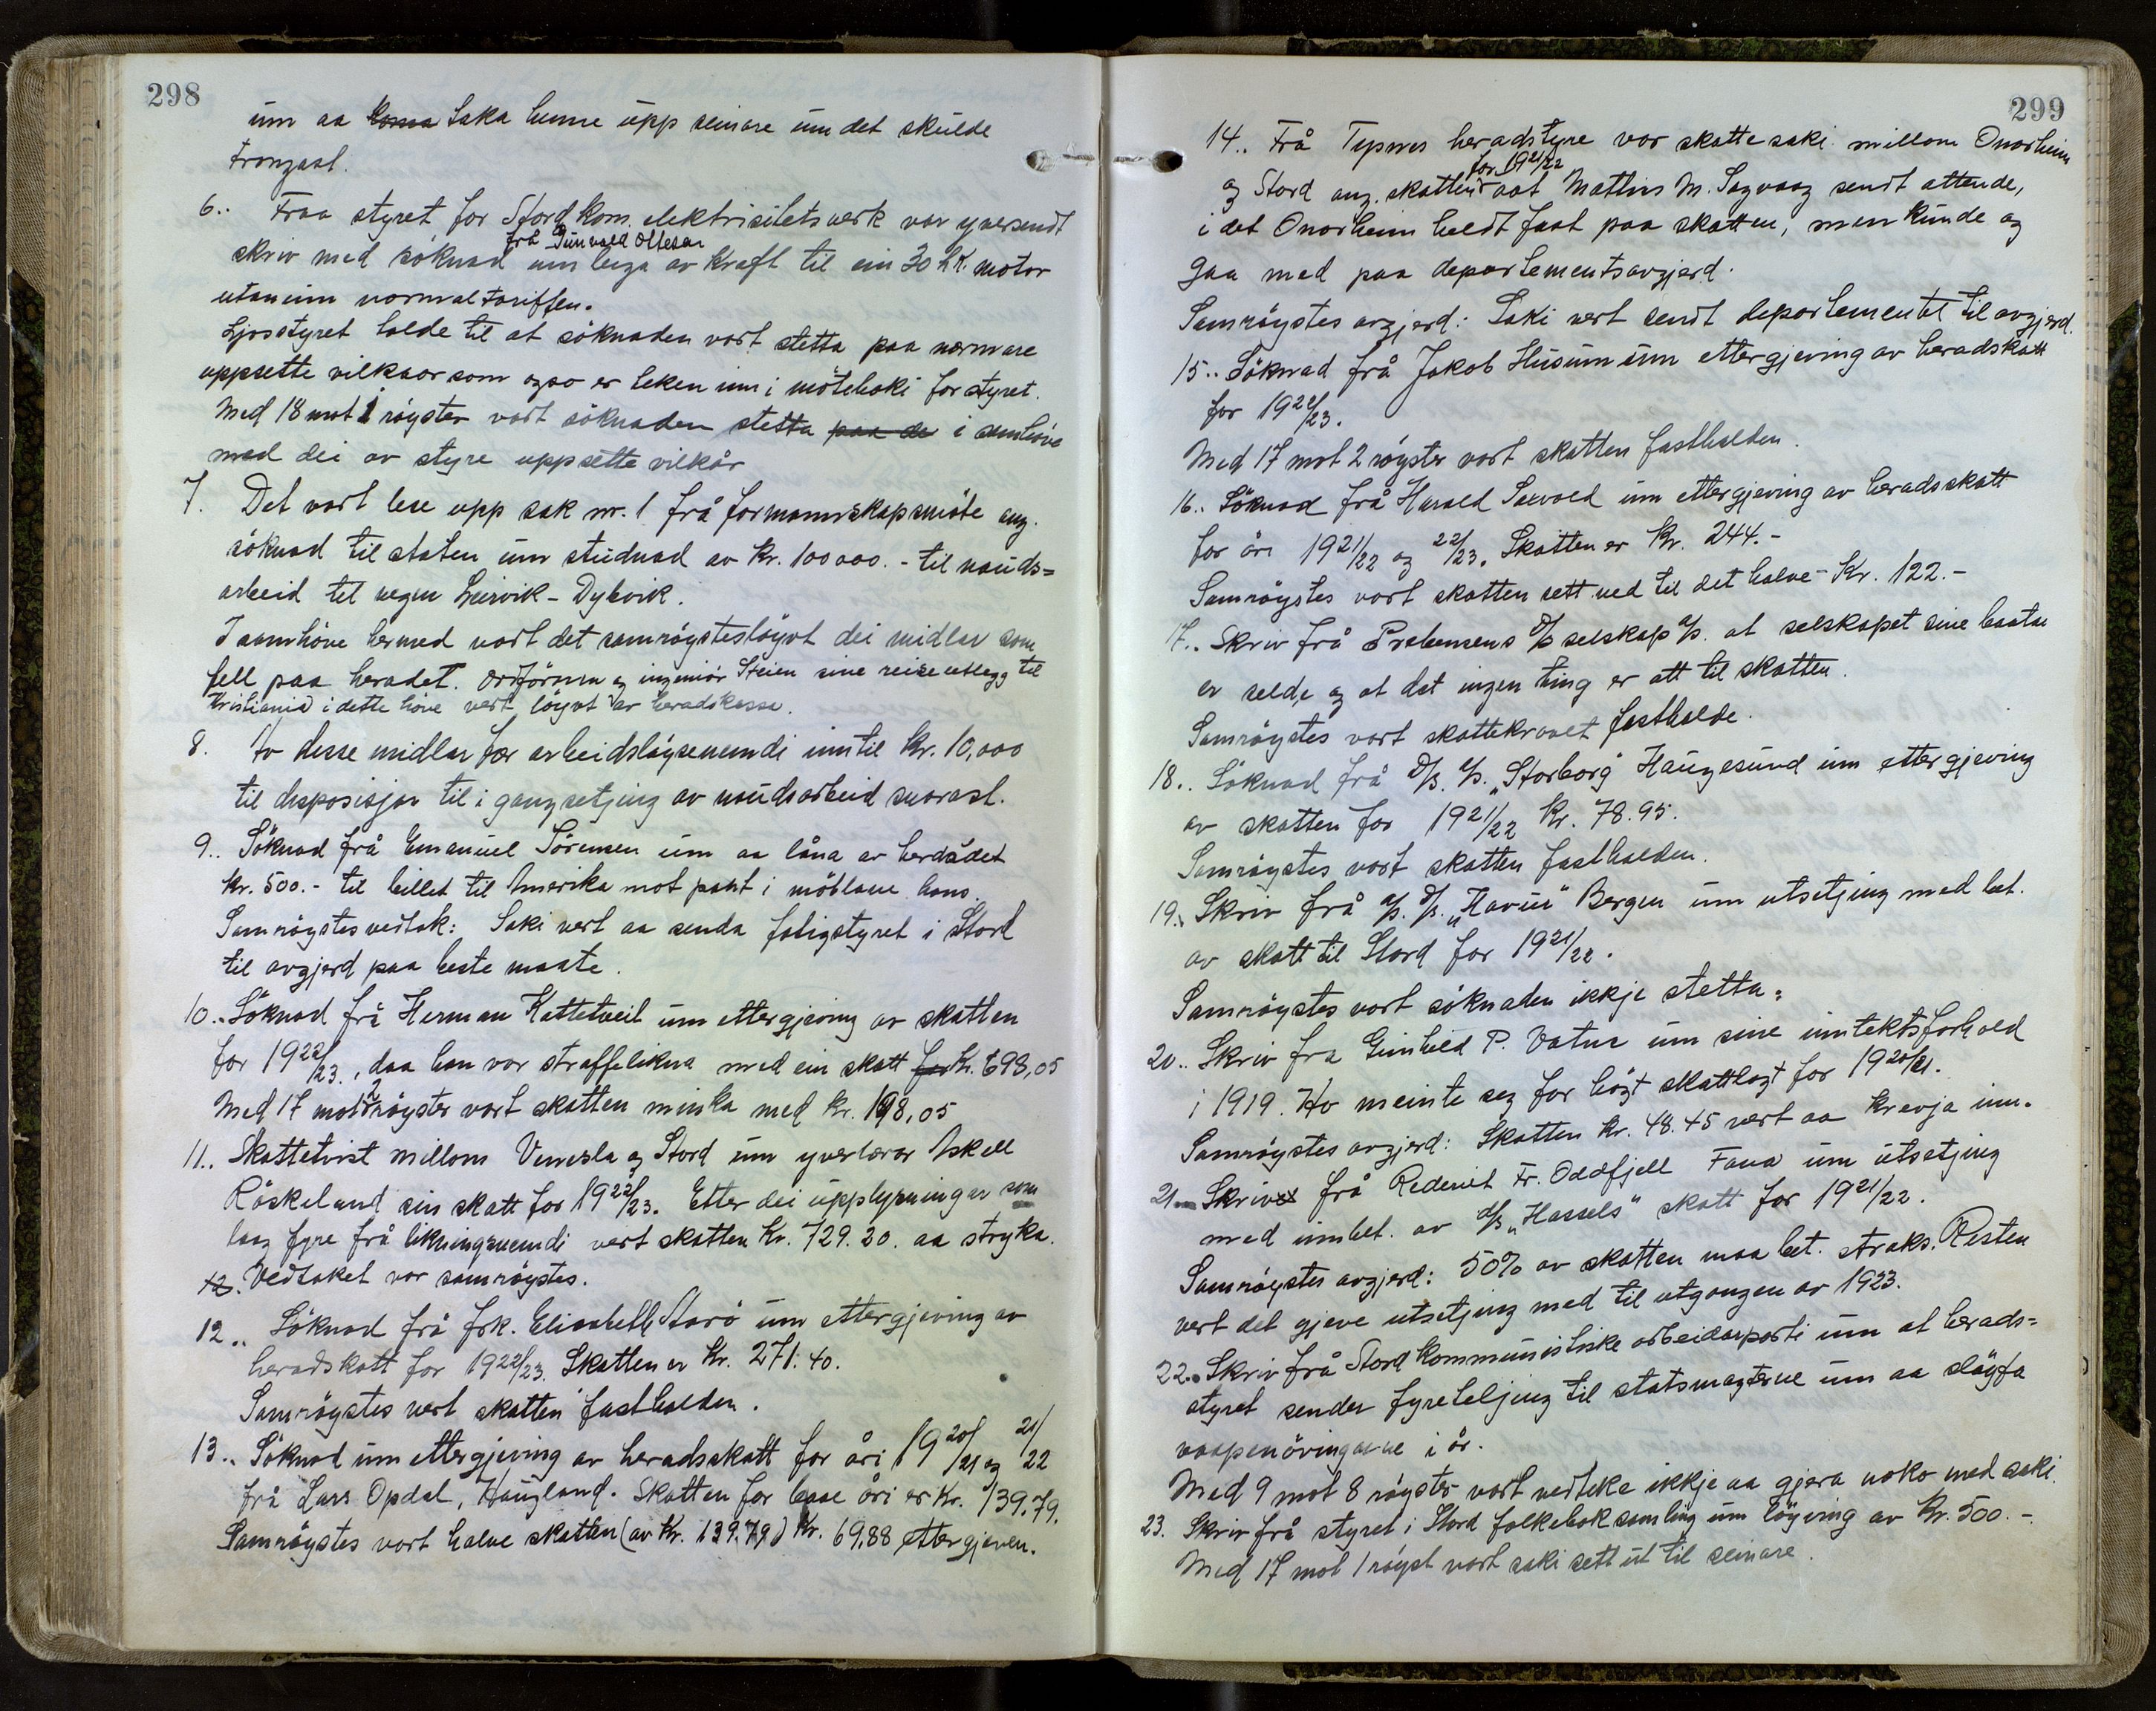 298
um aa koma taka henne upp seinare um det skulde
trongast.
6.. Fraa styret for Stord kom. elektrisitetsverk var yversendt
frå Gunvald Ollesen
skriv med söknad um leiga av kraft til ein 30 h.k. motor
utanum normaltariffen.
Ljosstyret holde til at söknaden vart stetta paa nærmare
uppsette vilkaar som ogso er teken inn i möteboki for styret.
Med 18 mot 1 röyster vart söknaden stetta paa de i samhöve
med dei av styre uppsette vilkår
7. Det vart lese upp sak nr. 1 frå formannskapsmöte ang.
söknad til staten um studnad av kr. 100 000.- til nauds=
arbeid til vegen Leirvik - Dybvik.
I samhöve hermed vart det samröystes löyvt dei midlar som
fell paa heradet. Ordförarn og ingeniör Steien sine reiseutlegg til
Kristiania i dette höve vert löyvt av heradskassa.
8. Av desse midlar fær arbeidslöysenemndi inntil kr. 10,000
til disposisjon til i gangsetjing av naudsarbeid snarast.
9.. Söknad frå Emanuel Sörensen um aa låna av herdadet
kr. 500.- til billet til Amerika mot pant i möblane hans.
Samröystes vedtak: Saki vert aa senda fatigstyret i Stord
til avgjerd paa beste maate.
10.. Söknad frå Herman Kattetveit um ettergjeving av skatten
for 1922/23., daa han var straffelikna med ein skatt for kr. 698,05
Med 17 mot 2 röyster vart skatten minka med kr. 198,05
11.. Skattetvist millom Vennesla og Stord um yverlærar Askell
Röskeland sin skatt for 1922/23. Etter dei upplysningar som
laag fyre frå likningsnemndi vert skatten kr. 729.20. aa stryka.
12. Vedtaket var samröystes.
12.. Söknad frå frk. Elisabeth Storö um ettergjeving av
heradskatt for 1922/23. Skatten er kr. 271.40.
Samröystes vert skatten fastholden.
13.. Söknad um ettergjeving av heradsskatt for åri 1920/21 og 21/22
frå Lars Opdal, Haugland. Skatten for baae åri er kr. 139.79.
Samröystes vart halve skatten (av kr. 139.79) kr. 69,88 ettergjeven.
299
14.. Frå Tysnes heradstyre var skattesaki millom Onarheim
for 1921/22
og Stord ang. skatten aat Mathis M. Sagvaag sendt attende,
i det Onarheim heldt fast paa skatten, men kunde og
gaa med paa departementsavgjerd.
Samröystes avgjerd: Saki vert sendt departementet til avgjerd.
15.. Söknad frå Jakob Husum um ettergjeving av heradskatt
for 1922/23.
Med 17 mot 2 röyster vart skatten fastholden.
16.. Söknad frå Harald Saxvold um ettergjeving av heradsskatt
for åri 1921/22 og 22/23. Skatten er kr. 244.-
Samröystes vart skatten sett ned til det halve - Kr. 122.-
17.. Skriv frå Prebensens D/s selskap a/s. at selskapet sine baatar
er selde, og at det ingen ting er att til skatten.
Samröystes vart skattekravet fastholde.
18.. Söknad frå D/s. a/s. "Storborg" Haugesund um ettergjeving
av skatten for 1921/22 kr. 78.95.
Samröystes vart skatten fastholden.
19.. Skriv frå a/s. D/s. "Havie" Bergen um utsetjing med bet.
av skatt til Stord for 1921/22.
Samröystes vart söknaden ikkje stetta.
20.. Skriv fra Gunhild P. Vatna um sine inntektsforhold
i 1919. Ho meinte seg for högt skattlagt for 1920/21.
Samröystes avgjerd: Skatten kr. 48.45 vert aa krevja inn.
21.. Skriv frå Rederiet Fr. Oddfjell Fana um utsetjing
med innbet. av d/s "Hassels" skatt for 1921/22.
Samröystes avgjerd: 50% av skatten maa bet. straks. Resten
vert det gjeve utsetjing med til utgangen av 1923.
22.. Skriv frå Stord kommunistiske arbeidarparti um at herads=
styret sender fyreteljing til statsmagterne um aa slöyfa
vaapenövingarne i år.
Med 9 mot 8 röyster vart vedteke ikkje aa gjera noko med saki.
23. Skriv frå styret i Stord folkeboksamling um löyving av kr. 500.-.
Med 17 mot 1 röyst vart saki sett ut til seinare.